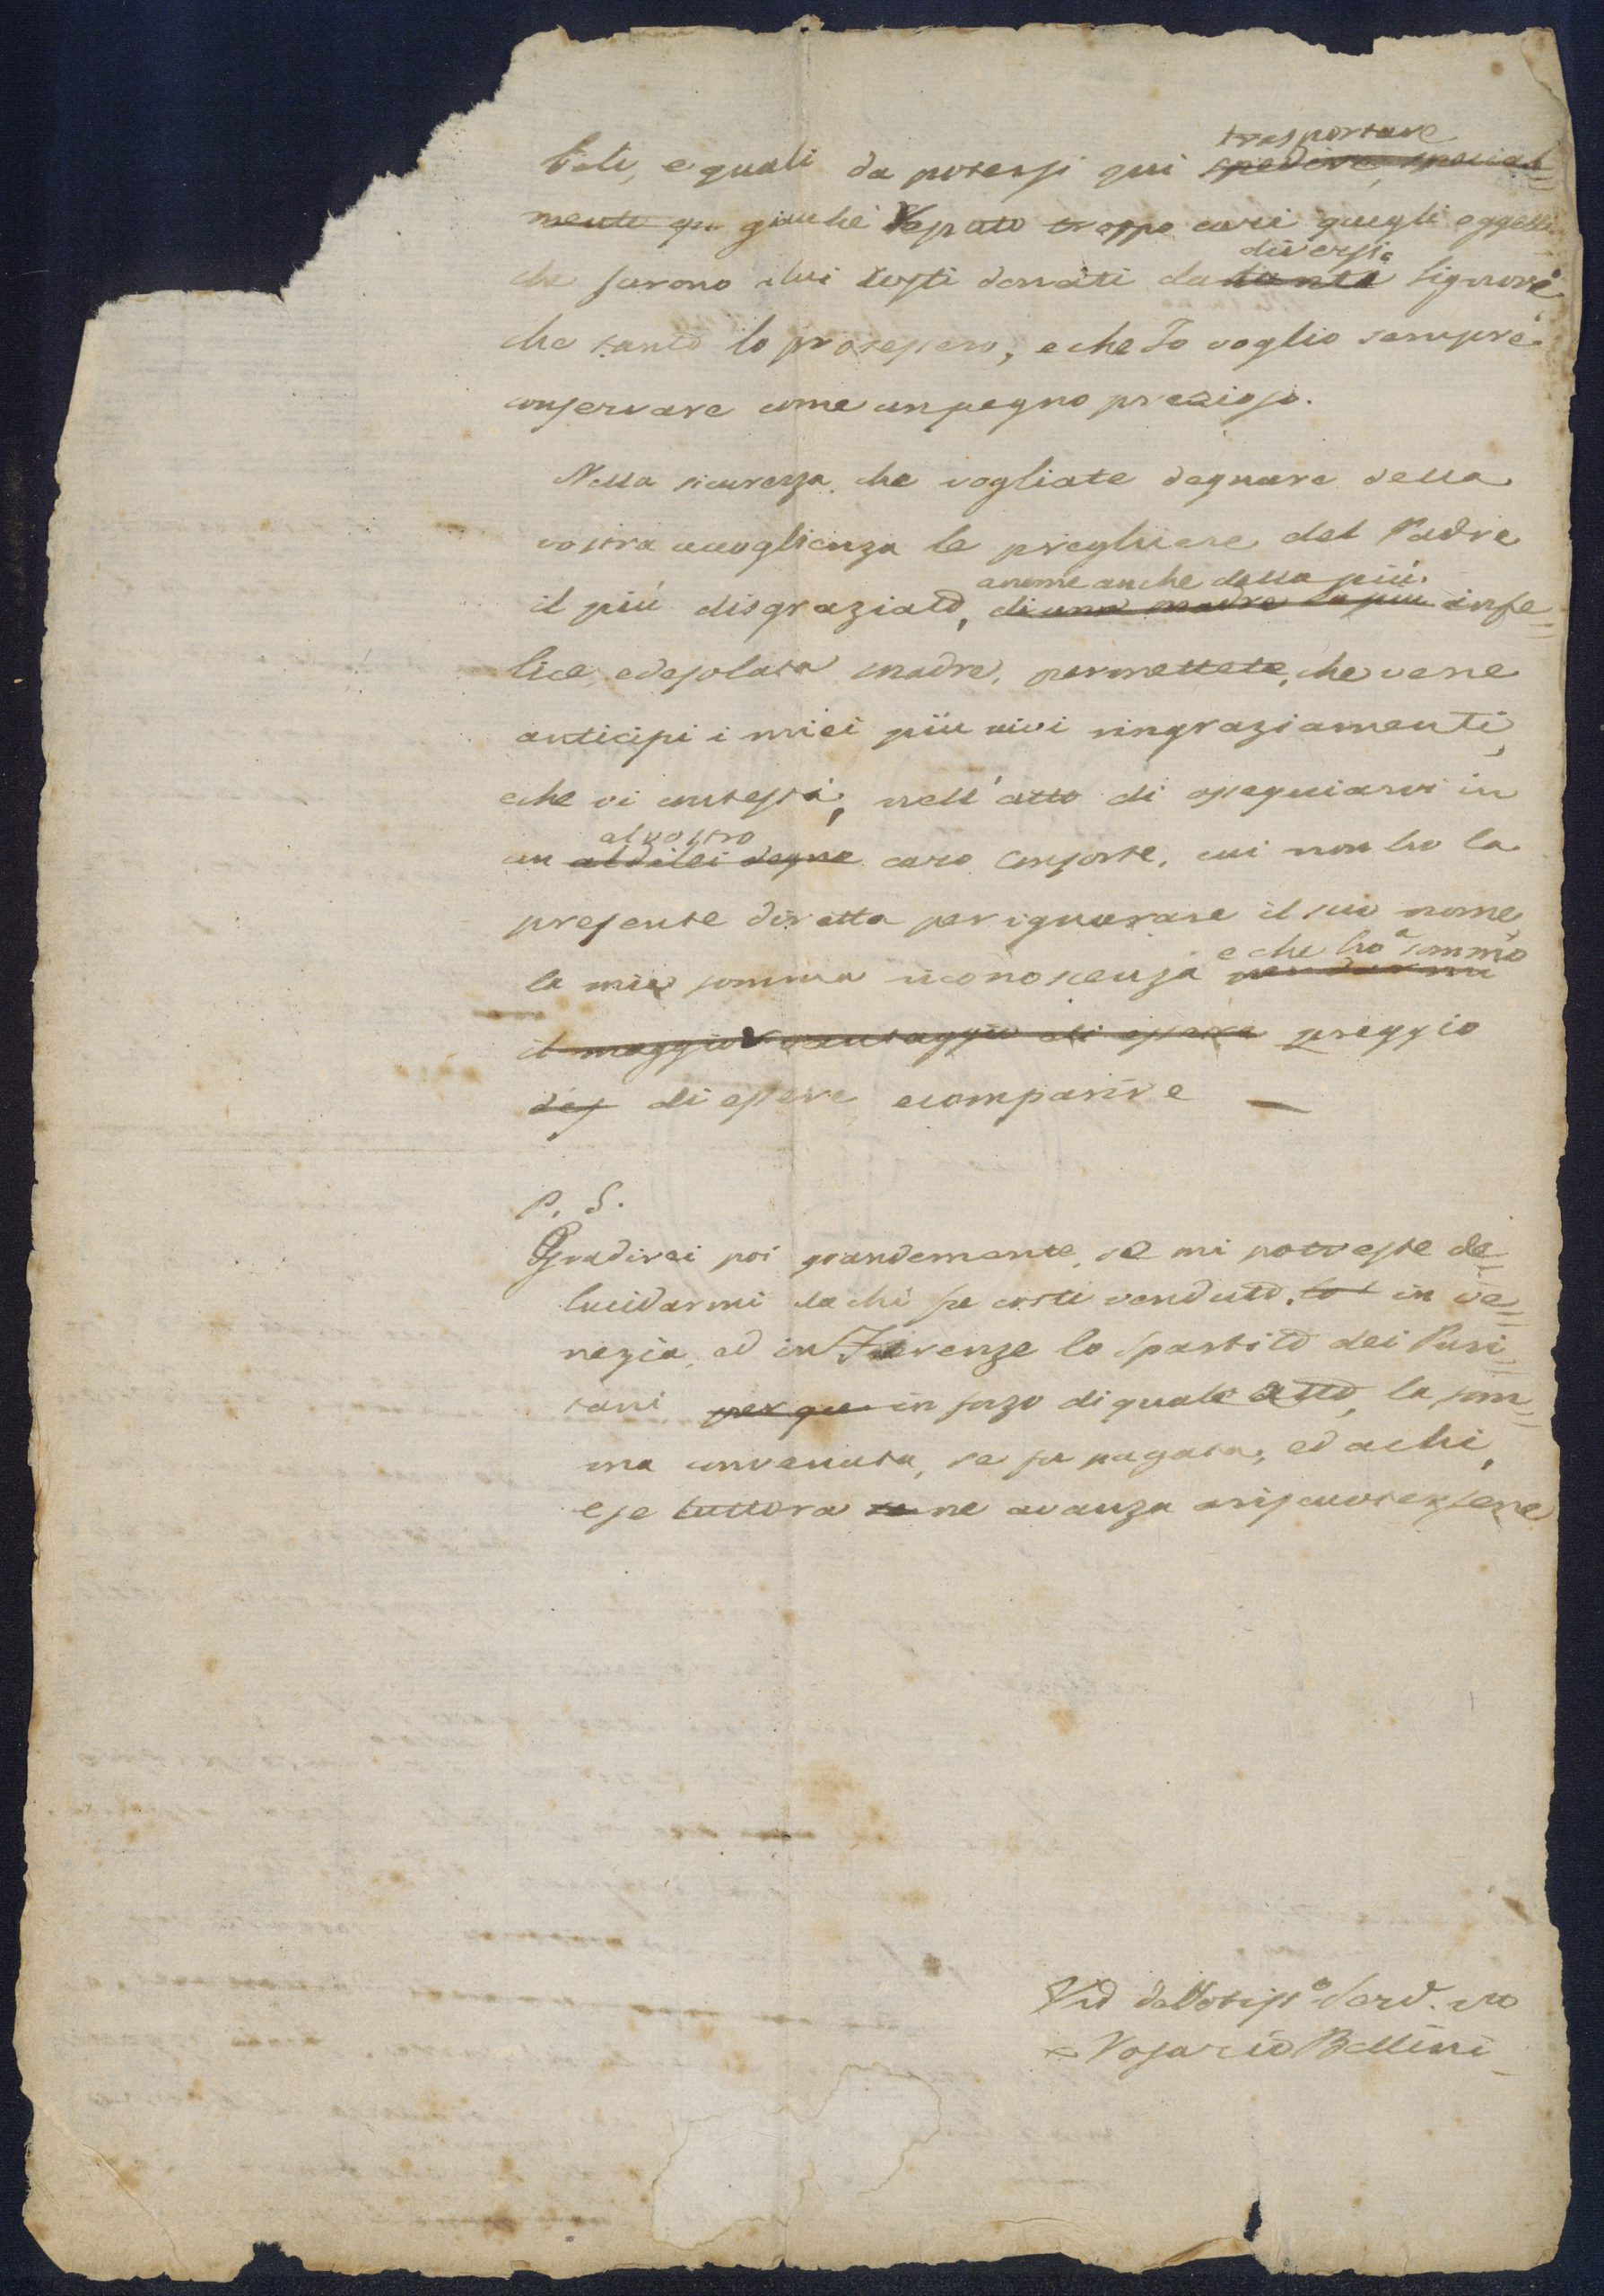 trasportare
bili, e quali da potersi qui spedire, special=
mente qu giacchè Reputo troppo cari quegli oggetti
diversi
che furono a lui costì donati da tante Signore
che tanto lo protessero, e che Io voglio sempre
conservare come un pegno prezioso.
Nella sicurezza, che vogliate degnare della
vostra accoglienza le preghiere del Padre
a nome anche della più
il più disgraziato, di una madre la più infe=
lice, e desolata madre, permettete, che vene
anticipi i miei più vivi ringraziamenti,
e che vi contesti, nell'atto di ossequiarvi in
al vostro
un al di lei degno caro Consorte, cui non ho la
presente diretta per ignorare il suo nome,
e che ho a sommo
la mia somma riconoscenza
il maggior vantaggio di essere preggio
des di essere e comparire —
P. S.
Gradirei poi grandemente, se mi potreste de=
lucidarmi da chi fu costì venduto, in Ve=
nezia, ed in Firenze lo spartito dei Puri=
tani per qu in forza di quale atto, la som=
ma convenuta, se fu pagata, ed a chi,
e se tuttora se ne avanza a riscuotersene
Vr̃o Devotiss.o Serv. vro
Rosario Bellini